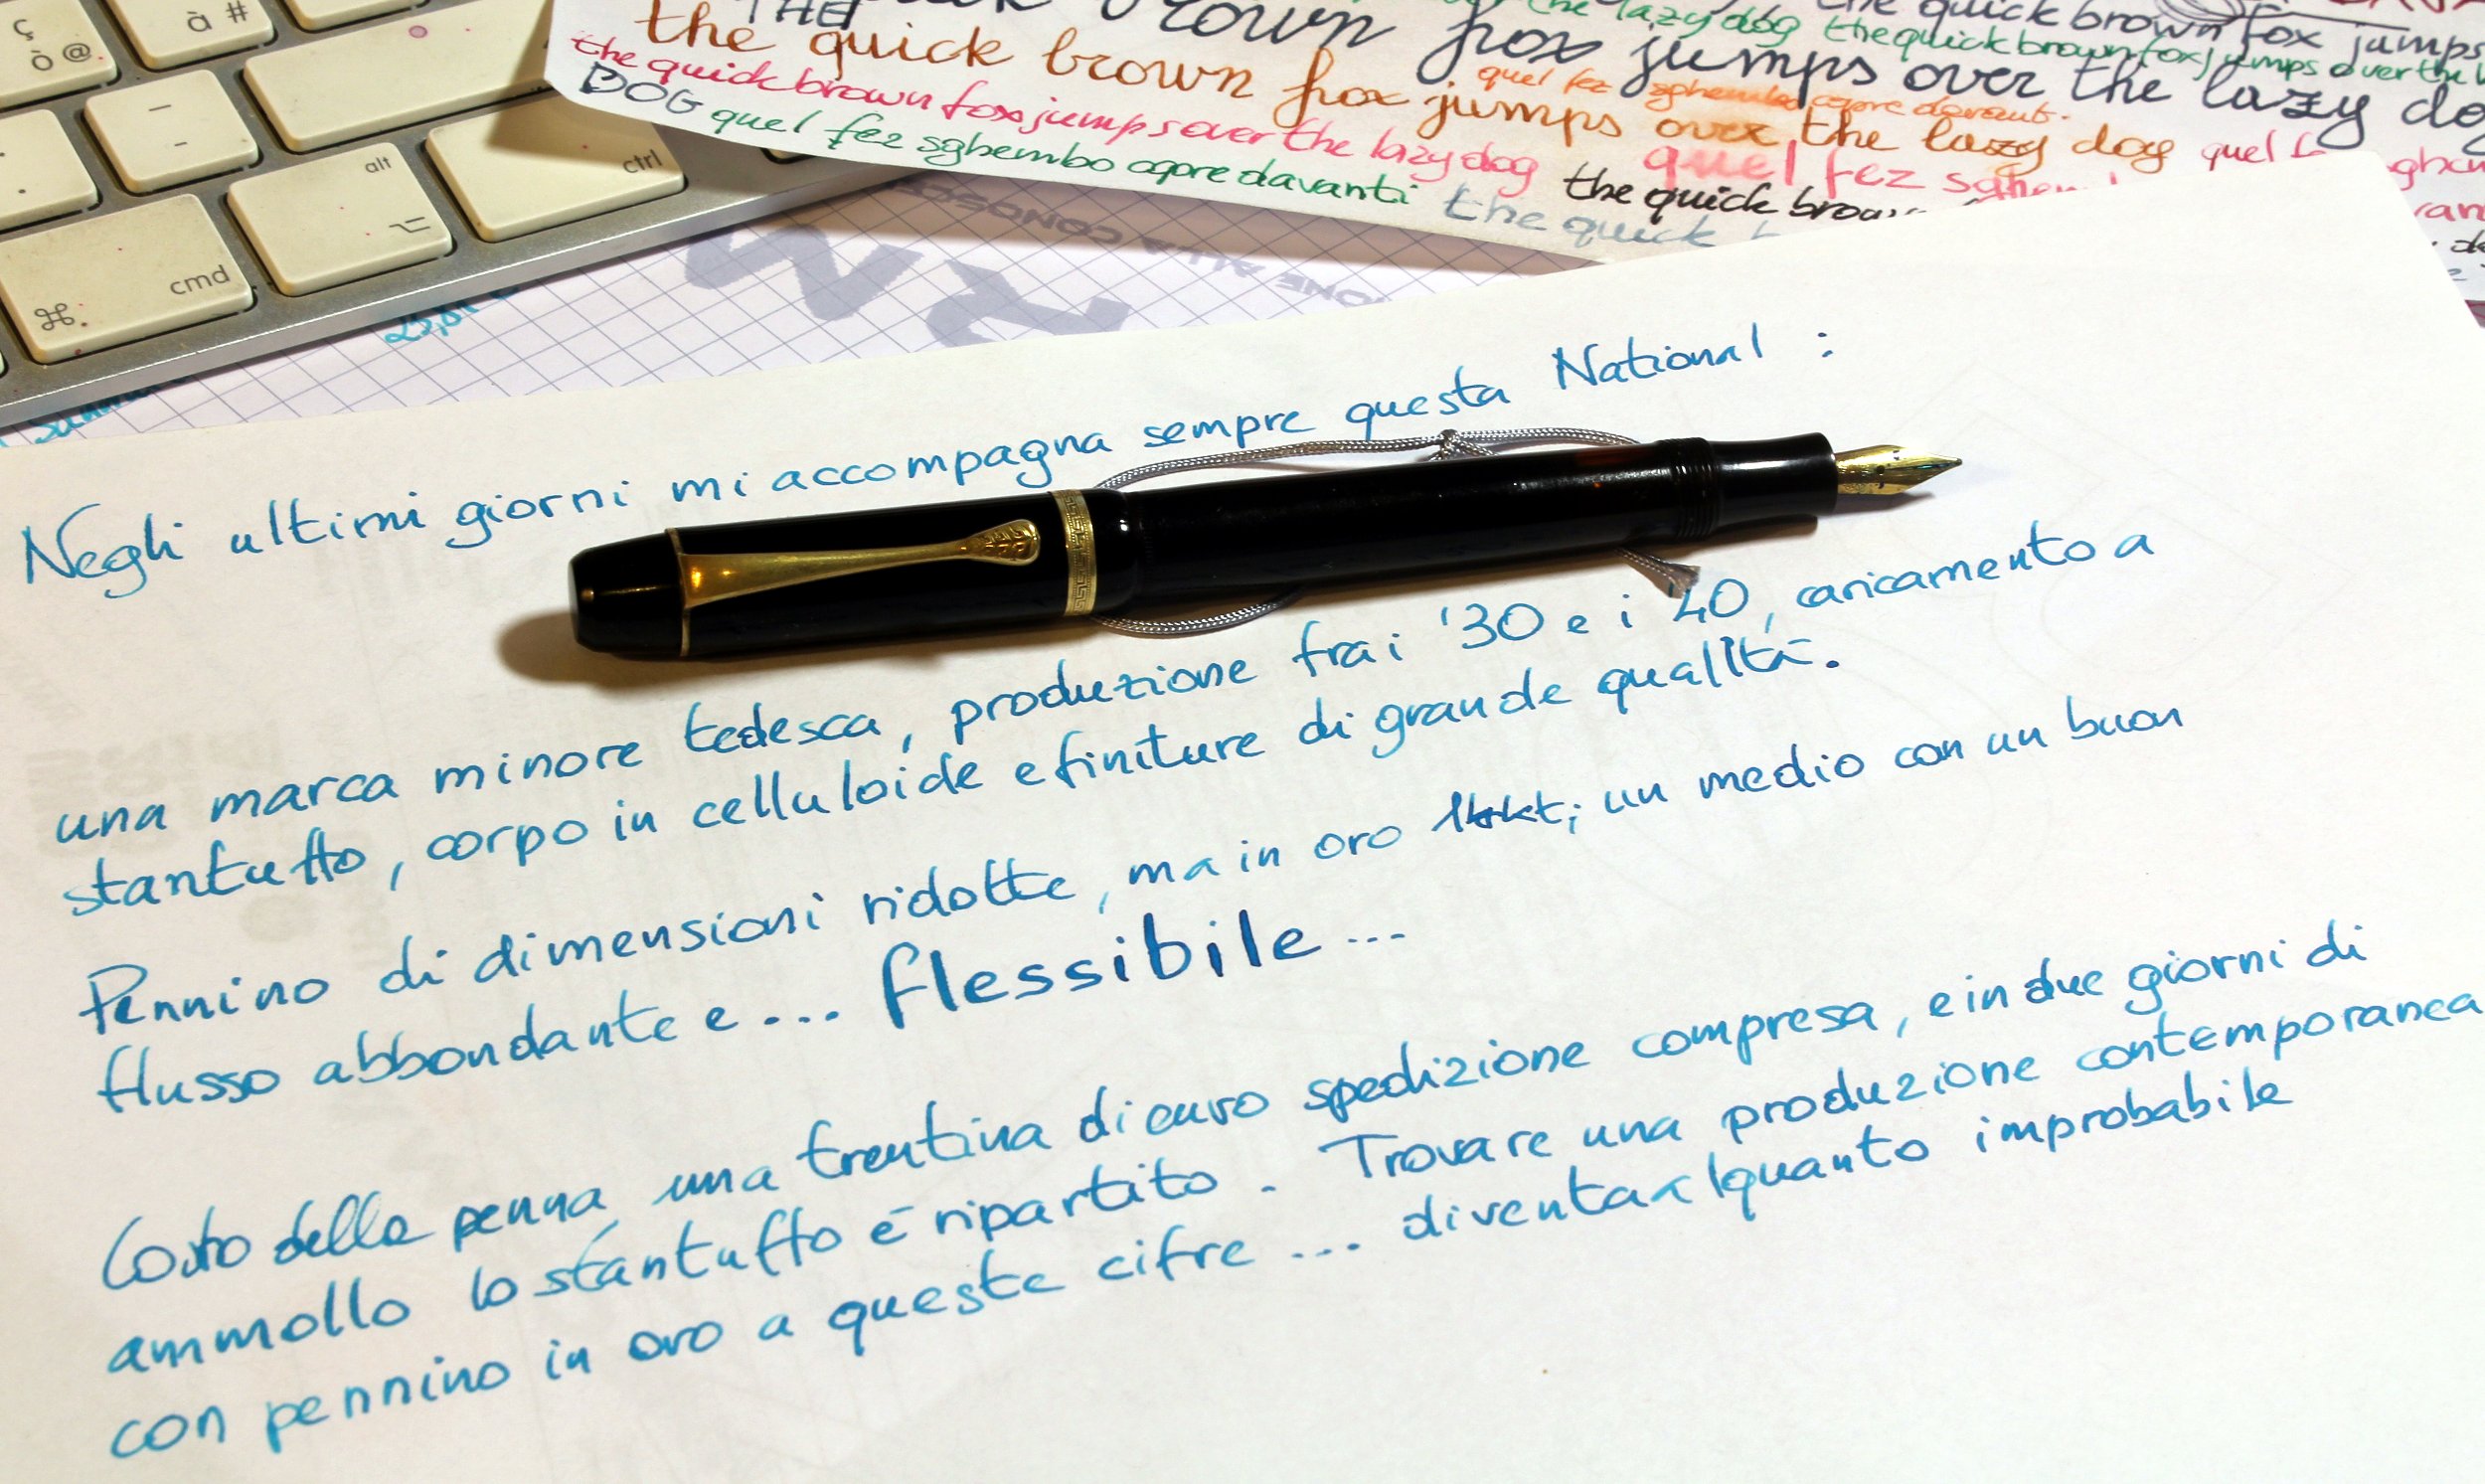 ç
ò @
à #
alt
ctrl
cmd
THE
brown fox jumps over the lazy dog
the lazy dog the quick brown fox jumps over the
the quick brown fox jumps
the quick brown fox jumps over the lazy dog
quel fez sghembo copre davanti.
the quick brown fox jumps over the lazy dog
quel fez
DOG quel fez sghembo copre davanti
the quick brown
the quick
Negli ultimi giorni mi accompagna sempre questa National :
una marca minore tedesca, produzione fra i '30 e i 40, caricamento a
stantuffo, corpo in celluloide e finiture di grande qualità.
Pennino di dimensioni ridotte, ma in oro 14kt; un medio con un buon
flusso abbondante e ... flessibile ...
Costo della penna una trentina di euro spedizione compresa, e in due giorni di
ammollo lo stantuffo è ripartito. Trovare una produzione contemporanea
con pennino in oro a queste cifre ... diventa alquanto improbabile